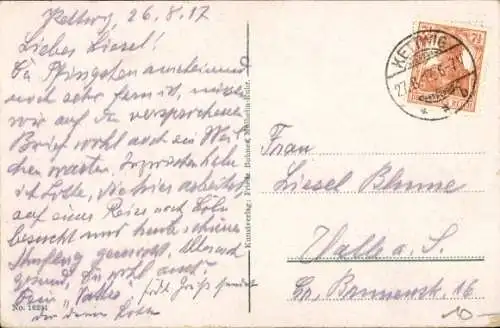 Kettwig 26.8.17
Liebes Liesel!
Da Pfingsten anscheinend
noch sehr fern ist, müssen
wir auf den versprochenen
Brief wohl auch ein Weil-
chen warten. Inzwischen habe
ich Lotte, die hier arbeitet,
auf einer Reise nach Köln
besucht und heute
gemacht. Alles noch
gesund, Du wohl auch?
Dein
Lotte
No. 16241
Kunstverlag: Friedr. Bohner, Mülheim-Ruhr.
KETTWIG
27.8.17. 6-7
7½
Frau
Liesel Blume
Halle a. S.
Gr. Brunnenst. 16